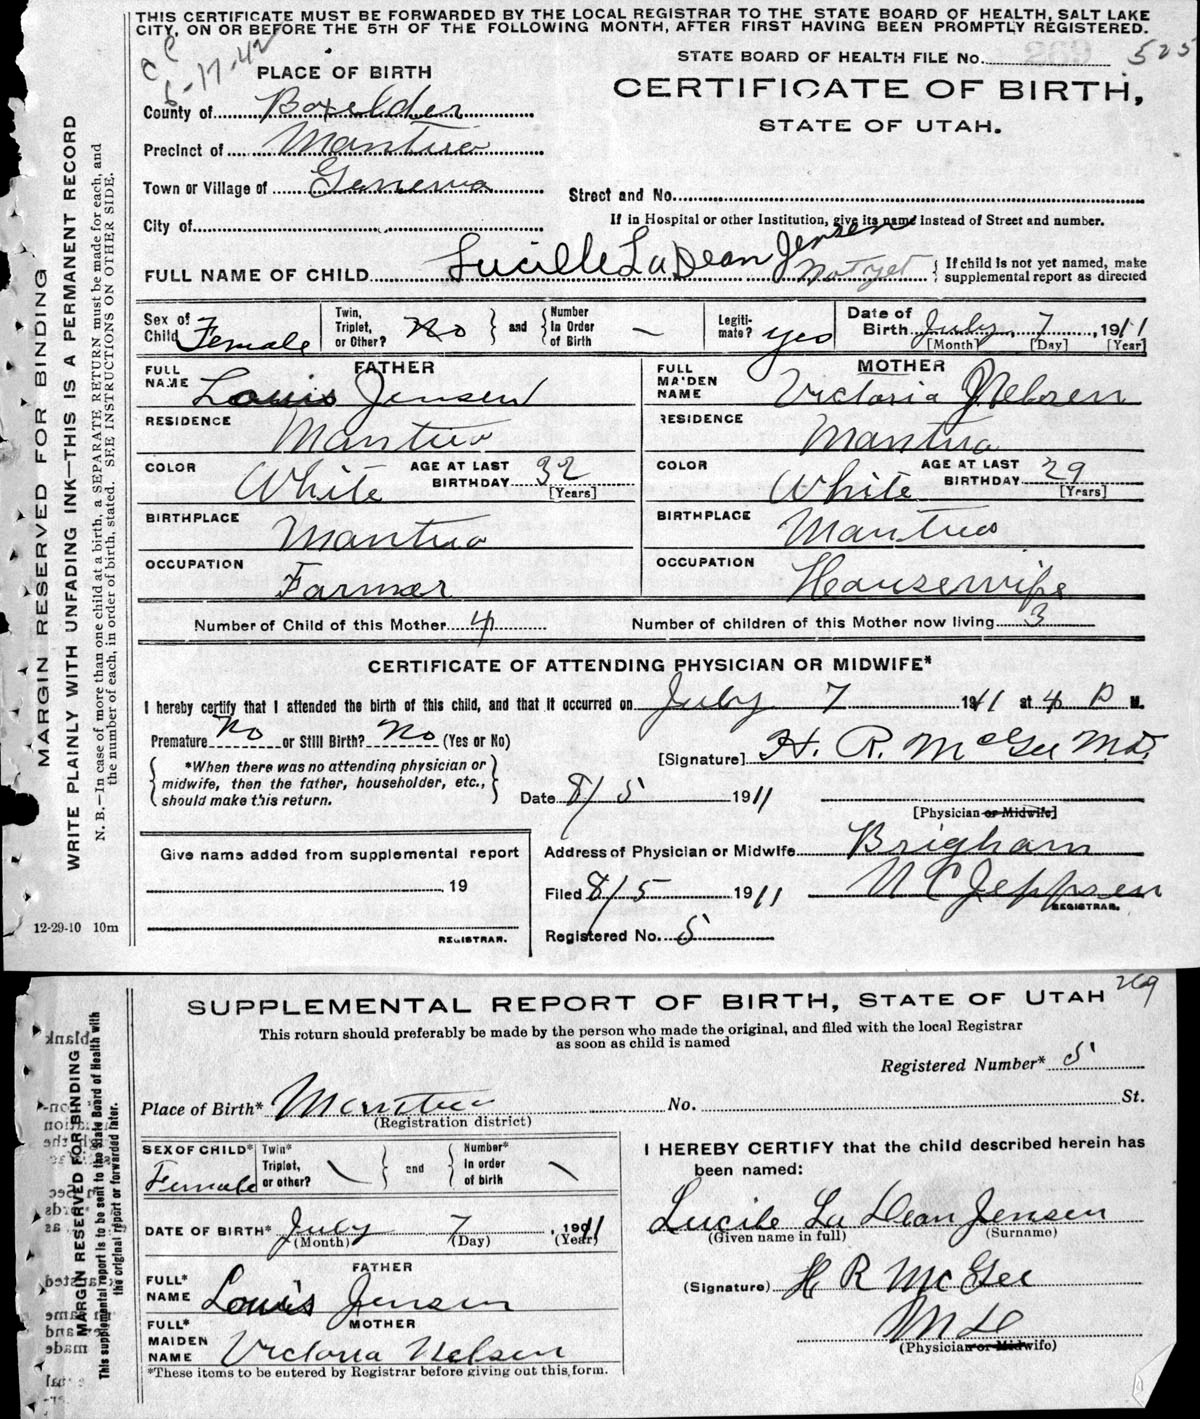 THIS CERTIFICATE MUST BE FORWARDED BY THE LOCAL REGISTRAR TO THE STATE BOARD OF HEALTH, SALT LAKE
CITY, ON OR BEFORE THE 5TH OF THE FOLLOWING MONTH, AFTER FIRST HAVING BEEN PROMPTLY REGISTERED.
CC
6-17-42
STATE BOARD OF HEALTH FILE No. 525
PLACE OF BIRTH
CERTIFICATE OF BIRTH,
STATE OF UTAH.
County of Boxelder
Precinct of Mantua
Town or Village of Geneva
Street and No.
City of
If in Hospital or other Institution, give its name instead of Street and number.
FULL NAME OF CHILD Lucille La Dean Jensen Not yet { If child is not yet named, make
supplemental report as directed
Sex of Child Female Twin, Triplet, or Other? No } and { Number In Order of Birth — Legiti-mate? yes Date of Birth July 7, 1911
[Month] [Day] [Year]
FATHER MOTHER
FULL NAME Louis Jensen FULL MAIDEN NAME Victoria J Nelson
RESIDENCE Mantua RESIDENCE Mantua
COLOR White AGE AT LAST BIRTHDAY 32 [Years] COLOR White AGE AT LAST BIRTHDAY 29 [Years]
BIRTHPLACE Mantua BIRTHPLACE Mantua
OCCUPATION Farmer OCCUPATION Housewife
Number of Child of this Mother 4 Number of children of this Mother now living 3
CERTIFICATE OF ATTENDING PHYSICIAN OR MIDWIFE*
I hereby certify that I attended the birth of this child, and that it occurred on July 7 1911 at 4 P M.
Premature No or Still Birth? No (Yes or No)
[Signature] H. R. McGee M.D.
*When there was no attending physician or
midwife, then the father, householder, etc.,
should make this return.
Date 8/5 1911
[Physician or Midwife]
Give name added from supplemental report
19
REGISTRAR.
Address of Physician or Midwife Brigham
Filed 8/5 1911 N C Jeppsen
REGISTRAR.
Registered No. 5
12-29-10 10m
MARGIN RESERVED FOR BINDING
WRITE PLAINLY WITH UNFADING INK—THIS IS A PERMANENT RECORD
N. B.—In case of more than one child at a birth, a SEPARATE RETURN must be made for each, and
the number of each, in order of birth, stated. SEE INSTRUCTIONS ON OTHER SIDE.
269
SUPPLEMENTAL REPORT OF BIRTH, STATE OF UTAH
This return should preferably be made by the person who made the original, and filed with the local Registrar
as soon as child is named
Registered Number* 5
Place of Birth* Mantua No. St.
(Registration district)
SEX OF CHILD* Female Twin* Triplet, or other? \ } and { Number* In order of birth \
DATE OF BIRTH* July 7, 1911
(Month) (Day) (Year)
FATHER
FULL* NAME Louis Jensen
MOTHER
FULL* MAIDEN NAME Victoria Nelson
*These items to be entered by Registrar before giving out this form.
I HEREBY CERTIFY that the child described herein has
been named:
Lucile La Dean Jensen
(Given name in full) (Surname)
(Signature) H R McGee
M D
(Physician or Midwife)
MARGIN RESERVED FOR BINDING
This supplemental report is to be sent to the State Board of Health with
the original report or forwarded later.